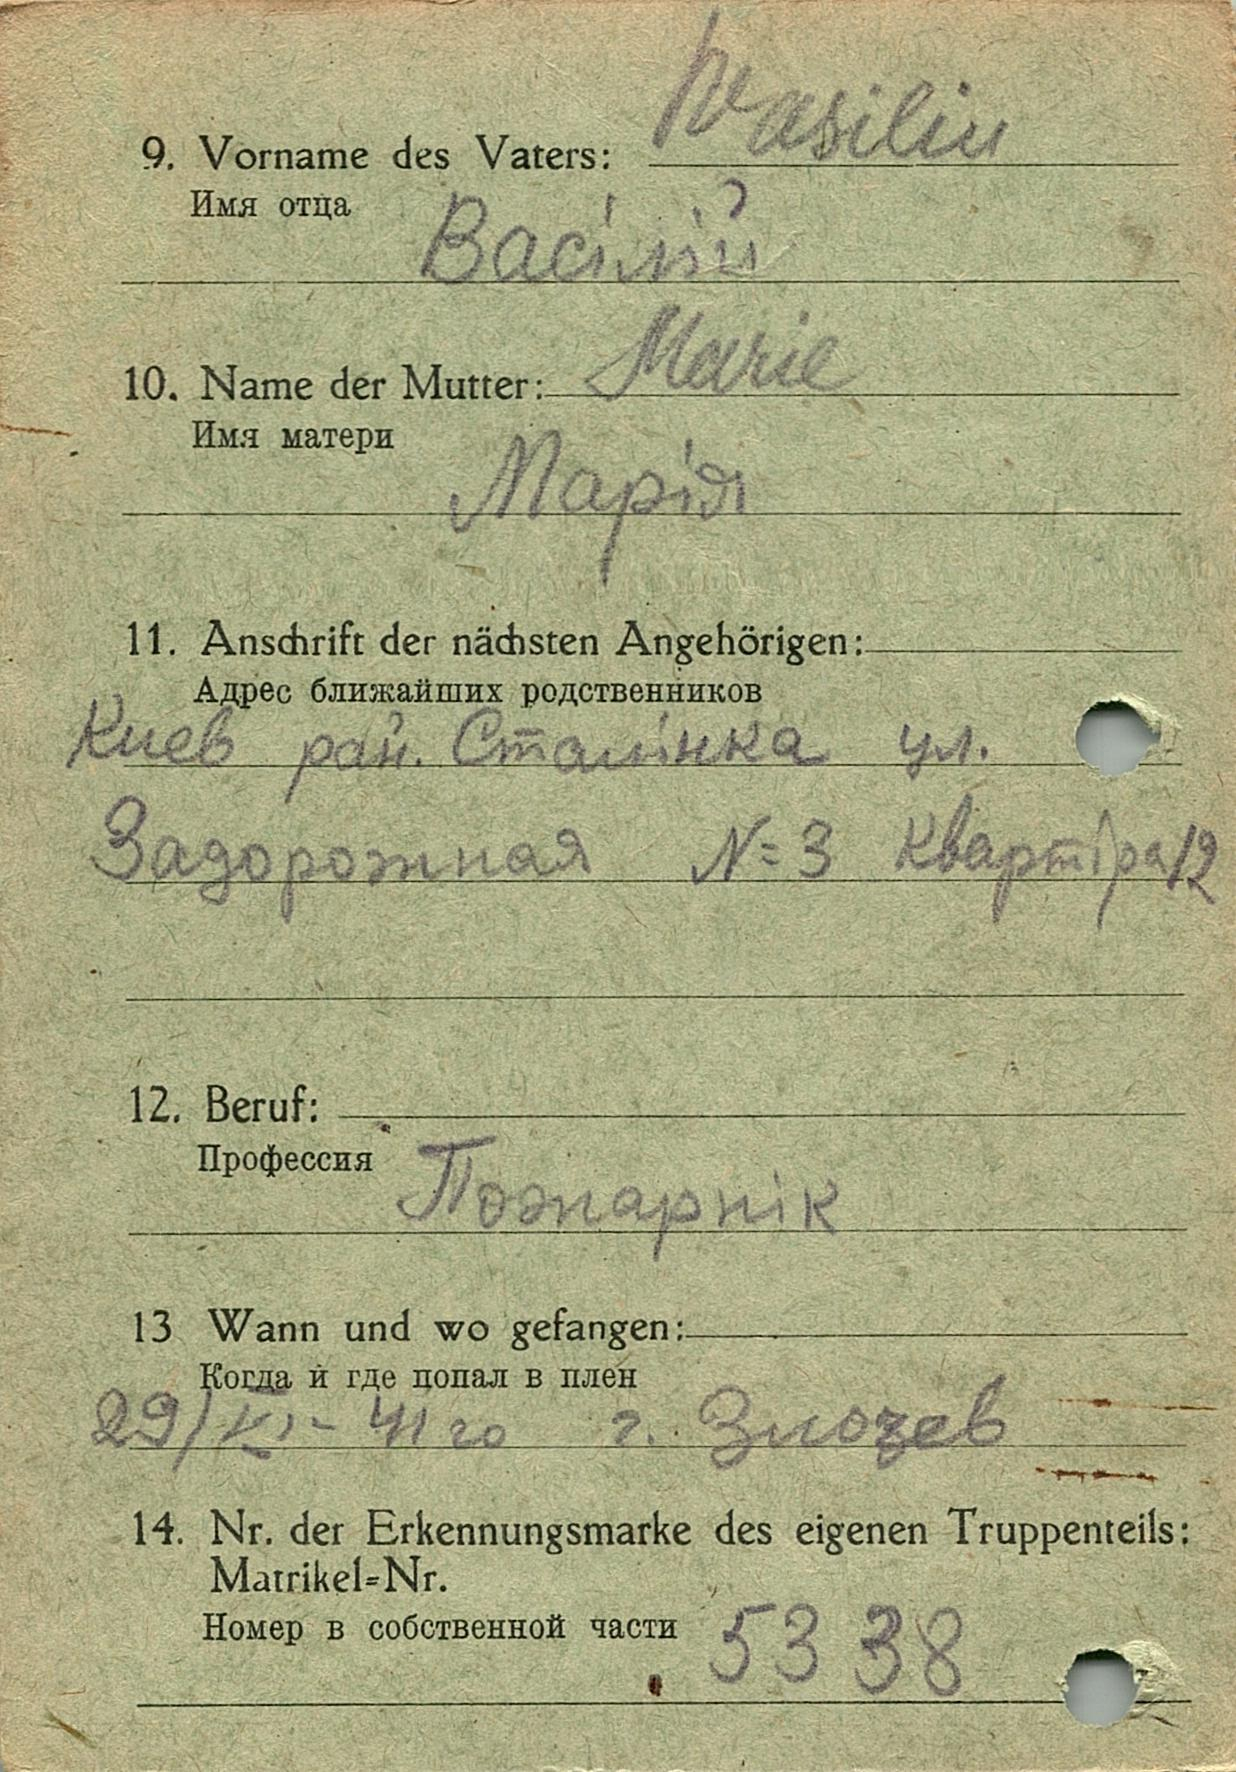 9. Vorname des Vaters: Wasiliu
Имя отца
Васілій
10. Name der Mutter: Marie
Имя матери
Марія
11. Anschrift der nächsten Angehörigen:
Адрес ближайших родственников
Киев рай. Сталінка ул.
Задорожная №=3 Квартіра 12
12. Beruf:
Профессия
Пожарнік
13 Wann und wo gefangen:
Когда и где попал в плен
29/ - 41 го г. Злочев
14. Nr. der Erkennungsmarke des eigenen Truppenteils:
Matrikel=Nr.
Номер в собственной части 5338